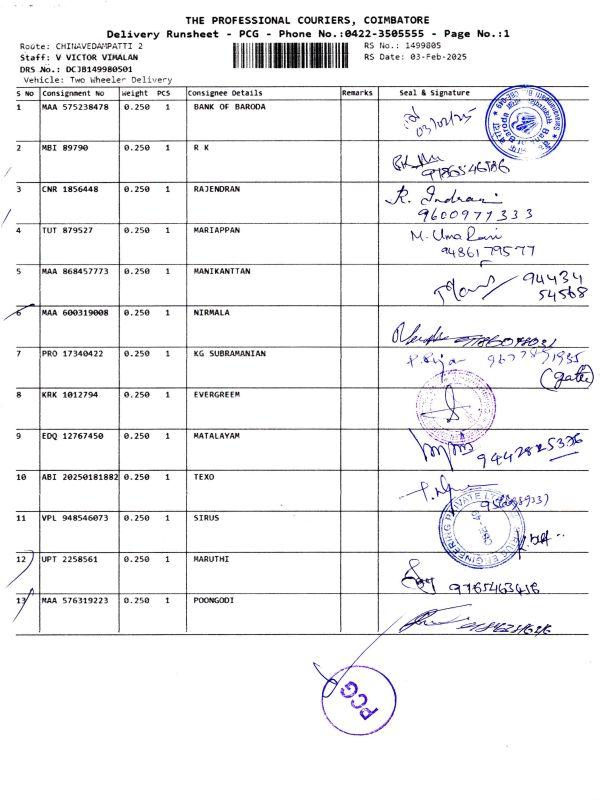 THE PROFESSIONAL COURIERS, COIMBATORE
Delivery Runsheet - PCG - Phone No.:0422-3505555 - Page No.:1
Route: CHINAVEDAMPATTI 2 RS No.: 1499805
Staff: V VICTOR VIMALAN RS Date: 03-Feb-2025
DRS No.: DCJB149980501
Vehicle: Two Wheeler Delivery
S No Consignment No Weight PCS Consignee Details Remarks Seal & Signature
1 MAA 575238478 0.250 1 BANK OF BARODA 03/02/25
2 MBI 89790 0.250 1 R K
3 CNR 1856448 0.250 1 RAJENDRAN R. Indrani
9600977333
4 TUT 879527 0.250 1 MARIAPPAN M. Uma Rani
9486179577
5 MAA 868457773 0.250 1 MANIKANTTAN 94434
54568
6 MAA 600319008 0.250 1 NIRMALA
7 PRO 17340422 0.250 1 KG SUBRAMANIAN
8 KRK 1012794 0.250 1 EVERGREEM
9 EDQ 12767450 0.250 1 MATALAYAM
10 ABI 20250181882 0.250 1 TEXO
11 VPL 948546073 0.250 1 SIRUS
12 UPT 2258561 0.250 1 MARUTHI
13 MAA 576319223 0.250 1 POONGODI
PCG